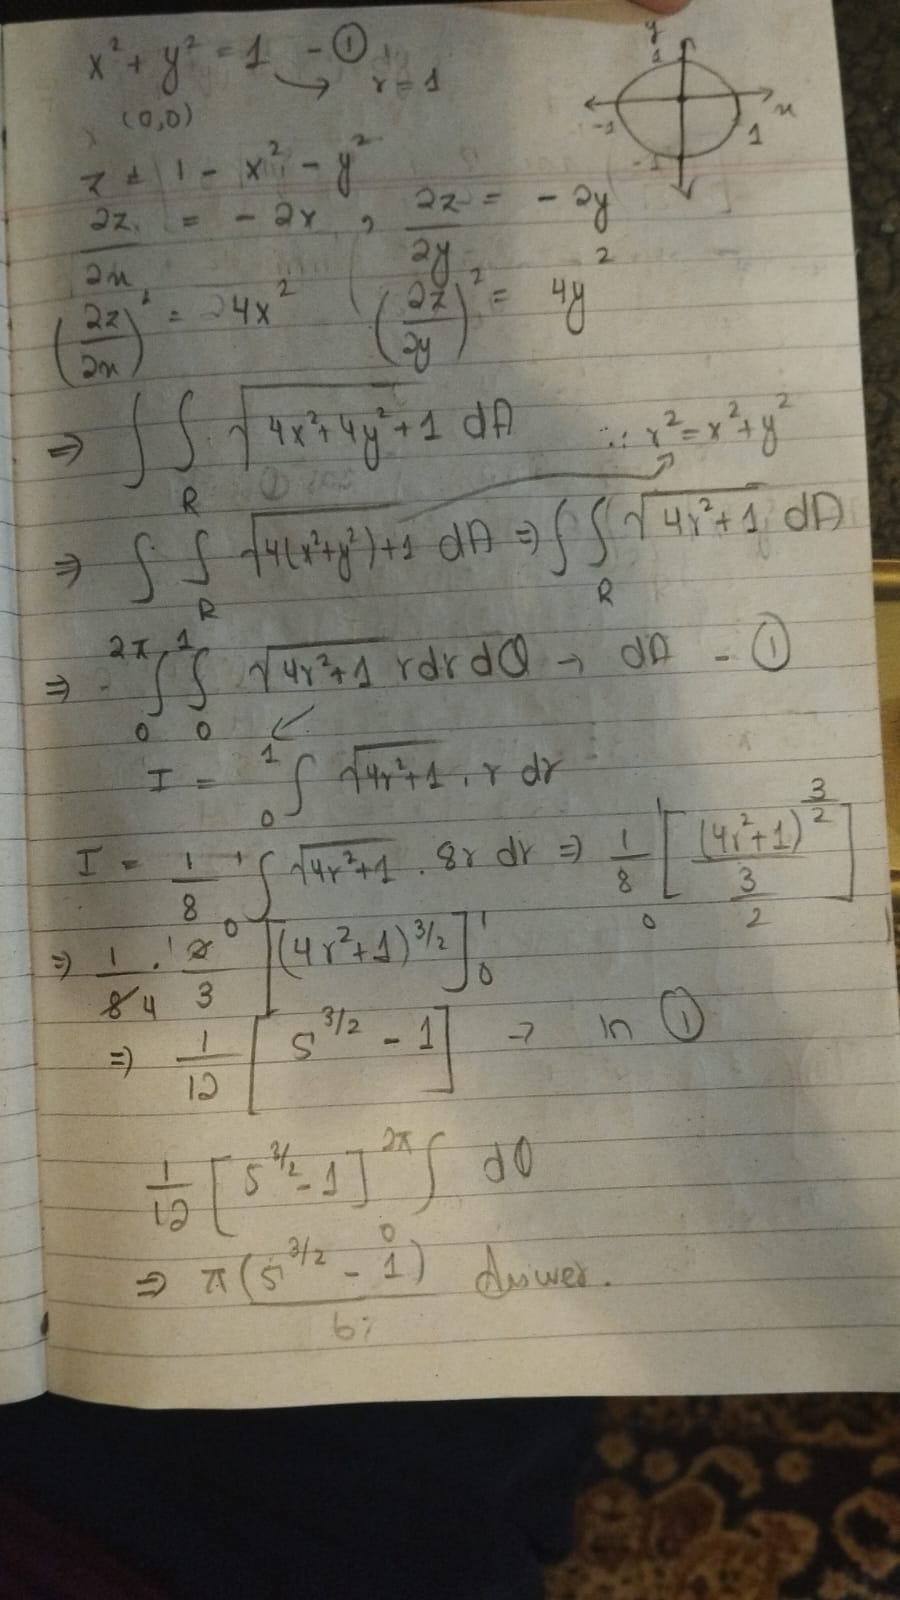 x² + y² = 1 - ① → r = 1
(0,0)
y
1
-1
1
x
-1
z = 1 - x² - y²
∂z/∂x = - 2x , ∂z/∂y = - 2y
(∂z/∂x)² = 4x² (∂z/∂y)² = 4y²
⇒ ∫∫_R √(4x²+4y²+1) dA ∵ r² = x²+y²
⇒ ∫∫_R √(4(x²+y²)+1) dA ⇒ ∫∫_R √(4r²+1) dA
⇒ ∫₀^2π ∫₀^1 √(4r²+1) r dr dθ → dA - ①
I = ∫₀^1 √(4r²+1) . r dr
I = 1/8 ∫₀^1 √(4r²+1) . 8r dr ⇒ 1/8 [(4r²+1)^3/2 / 3/2]₀^1
⇒ 1/8 4 . 1 2/3 [(4r²+1)^3/2]₀^1
⇒ 1/12 [5^3/2 - 1] → in ①
1/12 [5^3/2 - 1] ∫₀^2π dθ
⇒ π(5^3/2 - 1)/6 Answer.